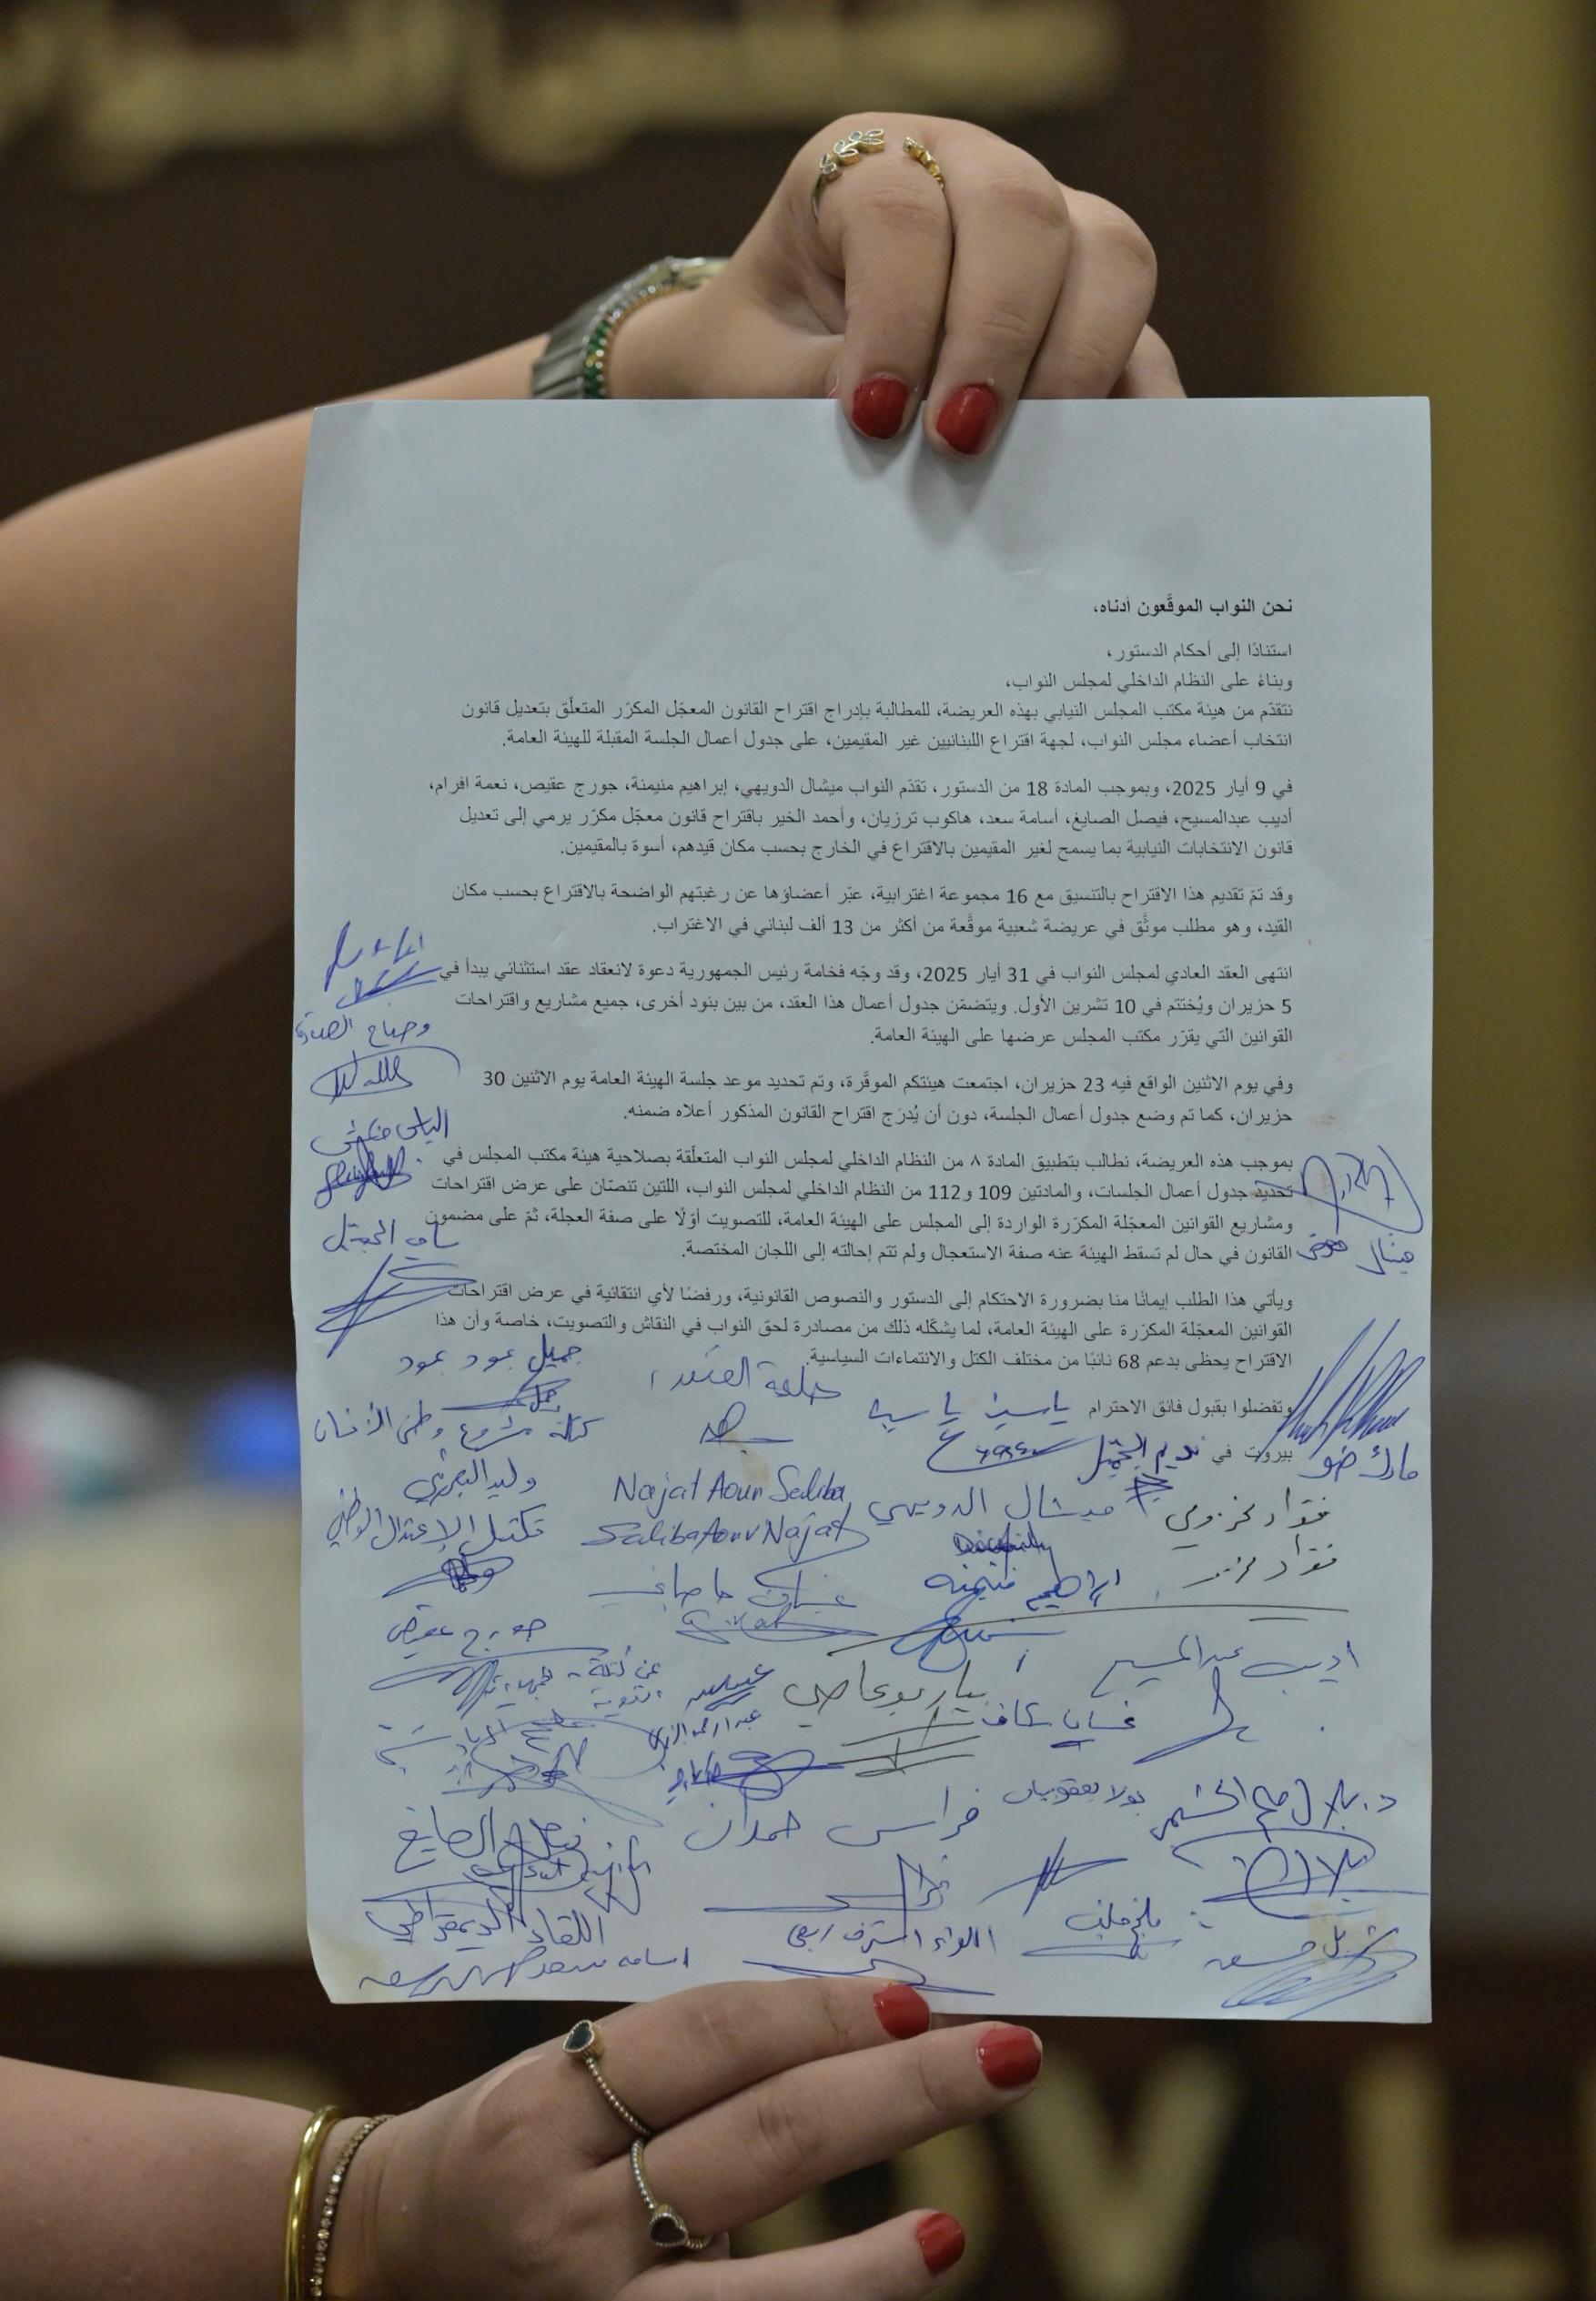 نحن النواب الموقَّعون أدناه،
استنادًا إلى أحكام الدستور،
وبناءً على النظام الداخلي لمجلس النواب،
نتقدّم من هيئة مكتب المجلس النيابي بهذه العريضة، للمطالبة بإدراج اقتراح القانون المعجّل المكرّر المتعلّق بتعديل قانون
انتخاب أعضاء مجلس النواب، لجهة اقتراع اللبنانيين غير المقيمين، على جدول أعمال الجلسة المقبلة للهيئة العامة.
في 9 أيار 2025، وبموجب المادة 18 من الدستور، تقدّم النواب ميشال الدويهي، إبراهيم منيمنة، جورج عقيص، نعمة افرام،
أديب عبدالمسيح، فيصل الصايغ، أسامة سعد، هاكوب ترزيان، وأحمد الخير باقتراح قانون معجّل مكرّر يرمي إلى تعديل
قانون الانتخابات النيابية بما يسمح لغير المقيمين بالاقتراع في الخارج بحسب مكان قيدهم، أسوة بالمقيمين.
وقد تمّ تقديم هذا الاقتراح بالتنسيق مع 16 مجموعة اغترابية، عبّر أعضاؤها عن رغبتهم الواضحة بالاقتراع بحسب مكان
القيد، وهو مطلب موثَّق في عريضة شعبية موقَّعة من أكثر من 13 ألف لبناني في الاغتراب.
انتهى العقد العادي لمجلس النواب في 31 أيار 2025، وقد وجّه فخامة رئيس الجمهورية دعوة لانعقاد عقد استثنائي يبدأ في
5 حزيران ويُختتم في 10 تشرين الأول. ويتضمّن جدول أعمال هذا العقد، من بين بنود أخرى، جميع مشاريع واقتراحات
القوانين التي يقرّر مكتب المجلس عرضها على الهيئة العامة.
وفي يوم الاثنين الواقع فيه 23 حزيران، اجتمعت هيئتكم الموقّرة، وتم تحديد موعد جلسة الهيئة العامة يوم الاثنين 30
حزيران، كما تم وضع جدول أعمال الجلسة، دون أن يُدرَج اقتراح القانون المذكور أعلاه ضمنه.
بموجب هذه العريضة، نطالب بتطبيق المادة ٨ من النظام الداخلي لمجلس النواب المتعلّقة بصلاحية هيئة مكتب المجلس في
تحديد جدول أعمال الجلسات، والمادتين 109 و112 من النظام الداخلي لمجلس النواب، اللتين تنصّان على عرض اقتراحات
ومشاريع القوانين المعجّلة المكرّرة الواردة إلى المجلس على الهيئة العامة، للتصويت أوّلًا على صفة العجلة، ثمّ على مضمون
القانون في حال لم تسقط الهيئة عنه صفة الاستعجال ولم تتم إحالته إلى اللجان المختصة.
ويأتي هذا الطلب إيمانًا منا بضرورة الاحتكام إلى الدستور والنصوص القانونية، ورفضًا لأي انتقائية في عرض اقتراحات
القوانين المعجّلة المكرّرة على الهيئة العامة، لما يشكّله ذلك من مصادرة لحق النواب في النقاش والتصويت، خاصة وأن هذا
الاقتراح يحظى بدعم 68 نائبًا من مختلف الكتل والانتماءات السياسية.
وتفضلوا بقبول فائق الاحترام
بيروت في
وضاح الصادق
الياس حنكش
سامي الجميّل
ميشال معوض
جميل عبود عبود
ياسين ياسين
نديم الجميّل
مارك ضو
وليد البعريني
Najat Aoun Saliba
ميشال الدويهي
فؤاد مخزومي
تكتل الاعتدال الوطني
Saliba Aoun Najat
ابراهيم منيمنه
غسان حاصباني
جورج عقيص
اديب عبد المسيح
بيار بو عاصي
غسان سكاف
بولا يعقوبيان
فراس حمدان
فيصل الصايغ
اللقاء الديمقراطي
ملحم خلف
شربل مسعد
اسامه سعد